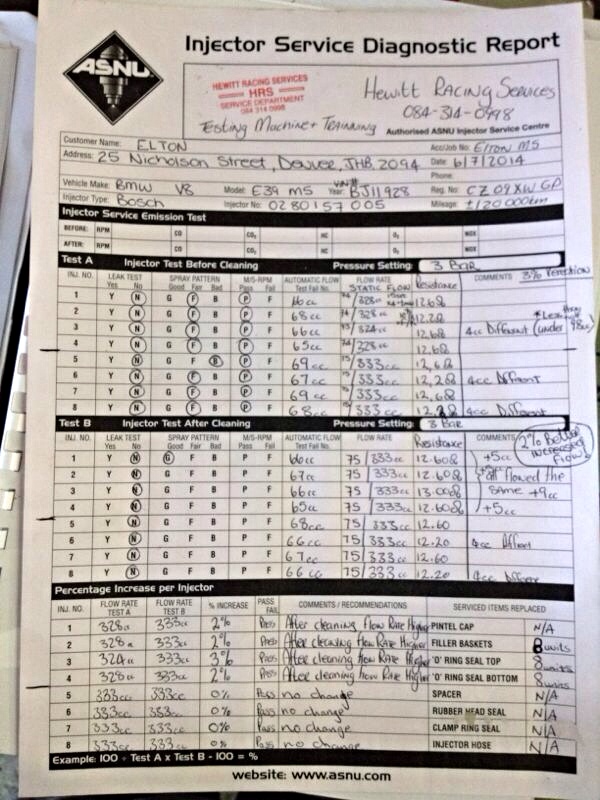 ASNU
Injector Service Diagnostic Report
HEWITT RACING SERVICES
HRS
SERVICE DEPARTMENT
084 314 0998
Hewitt Racing Services
084-314-0998
Testing Machine + Training
Authorised ASNU Injector Service Centre
Customer Name: ELTON Acc/Job No: Elton M5
Address: 25 Nicholson Street, Denver, JHB, 2094 Date: 6/7/2014
Phone:
Vehicle Make: BMW V8 Model: E39 M5 Year: BJ11928 Reg. No: CZ09XW GP
Injector Type: Bosch Injector No: 0280157005 Mileage: ±120000km
Injector Service Emission Test
BEFORE: RPM CO CO2 HC O2 NOX
AFTER: RPM CO CO2 HC O2 NOX
Test A Injector Test Before Cleaning Pressure Setting: 3 Bar
INJ. NO. LEAK TEST SPRAY PATTERN M/S-RPM AUTOMATIC FLOW FLOW RATE Resistance COMMENTS 3%
Yes No Good Fair Bad Pass Fail Test Fail No. STATIC FLOW
1 Y N G F B P F 66cc 328cc 12.6Ω
2 Y N G F B P F 68cc 328cc 12.2Ω
3 Y N G F B P F 66cc 324cc 12.6Ω 4cc Different (under
4 Y N G F B P F 65cc 328cc 12.6Ω
5 Y N G F B P F 69cc 75/333cc 12,6Ω
6 Y N G F B P F 67cc 75/333cc 12,2Ω 4cc Different
7 Y N G F B P F 69cc 75/333cc 12.6Ω
8 Y N G F B P F 68cc 75/333cc 12,2Ω 4cc Different
Test B Injector Test After Cleaning Pressure Setting: 3 Bar
INJ. NO. LEAK TEST SPRAY PATTERN M/S-RPM AUTOMATIC FLOW FLOW RATE Resistance COMMENTS 2% Better increased flow
Yes No Good Fair Bad Pass Fail Test Fail No.
1 Y N G F B P F 66cc 75/333cc 12.60Ω +5cc
2 Y N G F B P F 67cc 75/333cc 12.60Ω all flowed the
3 Y N G F B P F 66cc 75/333cc 13.00Ω same +9cc
4 Y N G F B P F 65cc 75/333cc 12.60Ω +5cc
5 Y N G F B P F 68cc 75/333cc 12.60
6 Y N G F B P F 66cc 75/333cc 12.20 4cc
7 Y N G F B P F 67cc 75/333cc 12.60
8 Y N G F B P F 66cc 75/333cc 12.20 4cc
Percentage Increase per Injector
INJ. NO. FLOW RATE TEST A FLOW RATE TEST B % INCREASE PASS FAIL COMMENTS / RECOMMENDATIONS SERVICED ITEMS REPLACED
1 328cc 333cc 2% Pass After cleaning flow Rate Higher PINTEL CAP N/A
2 328cc 333cc 2% Pass After cleaning flow Rate Higher FILLER BASKETS 8 units
3 324cc 333cc 3% Pass After cleaning flow Rate Higher 'O' RING SEAL TOP 8 units
4 328cc 333cc 2% Pass After cleaning flow Rate Higher 'O' RING SEAL BOTTOM 8 units
5 333cc 333cc 0% Pass no change SPACER N/A
6 333cc 333cc 0% Pass no change RUBBER HEAD SEAL N/A
7 333cc 333cc 0% Pass no change CLAMP RING SEAL N/A
8 333cc 333cc 0% Pass no change INJECTOR HOSE N/A
Example: 100 ÷ Test A x Test B - 100 = %
website: www.asnu.com